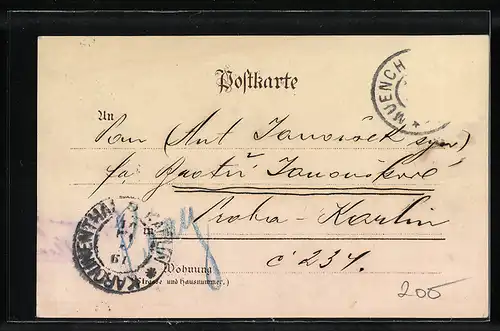 Postkarte
MUENCH
An
Pan (Ant Janoušek syn)
fa Bratří Janouškové
Praha - Karlin
KAROLINENTHAL KARLIN
Prag
Wohnung
č 234.
(Strasse und Hausnummer.)
200